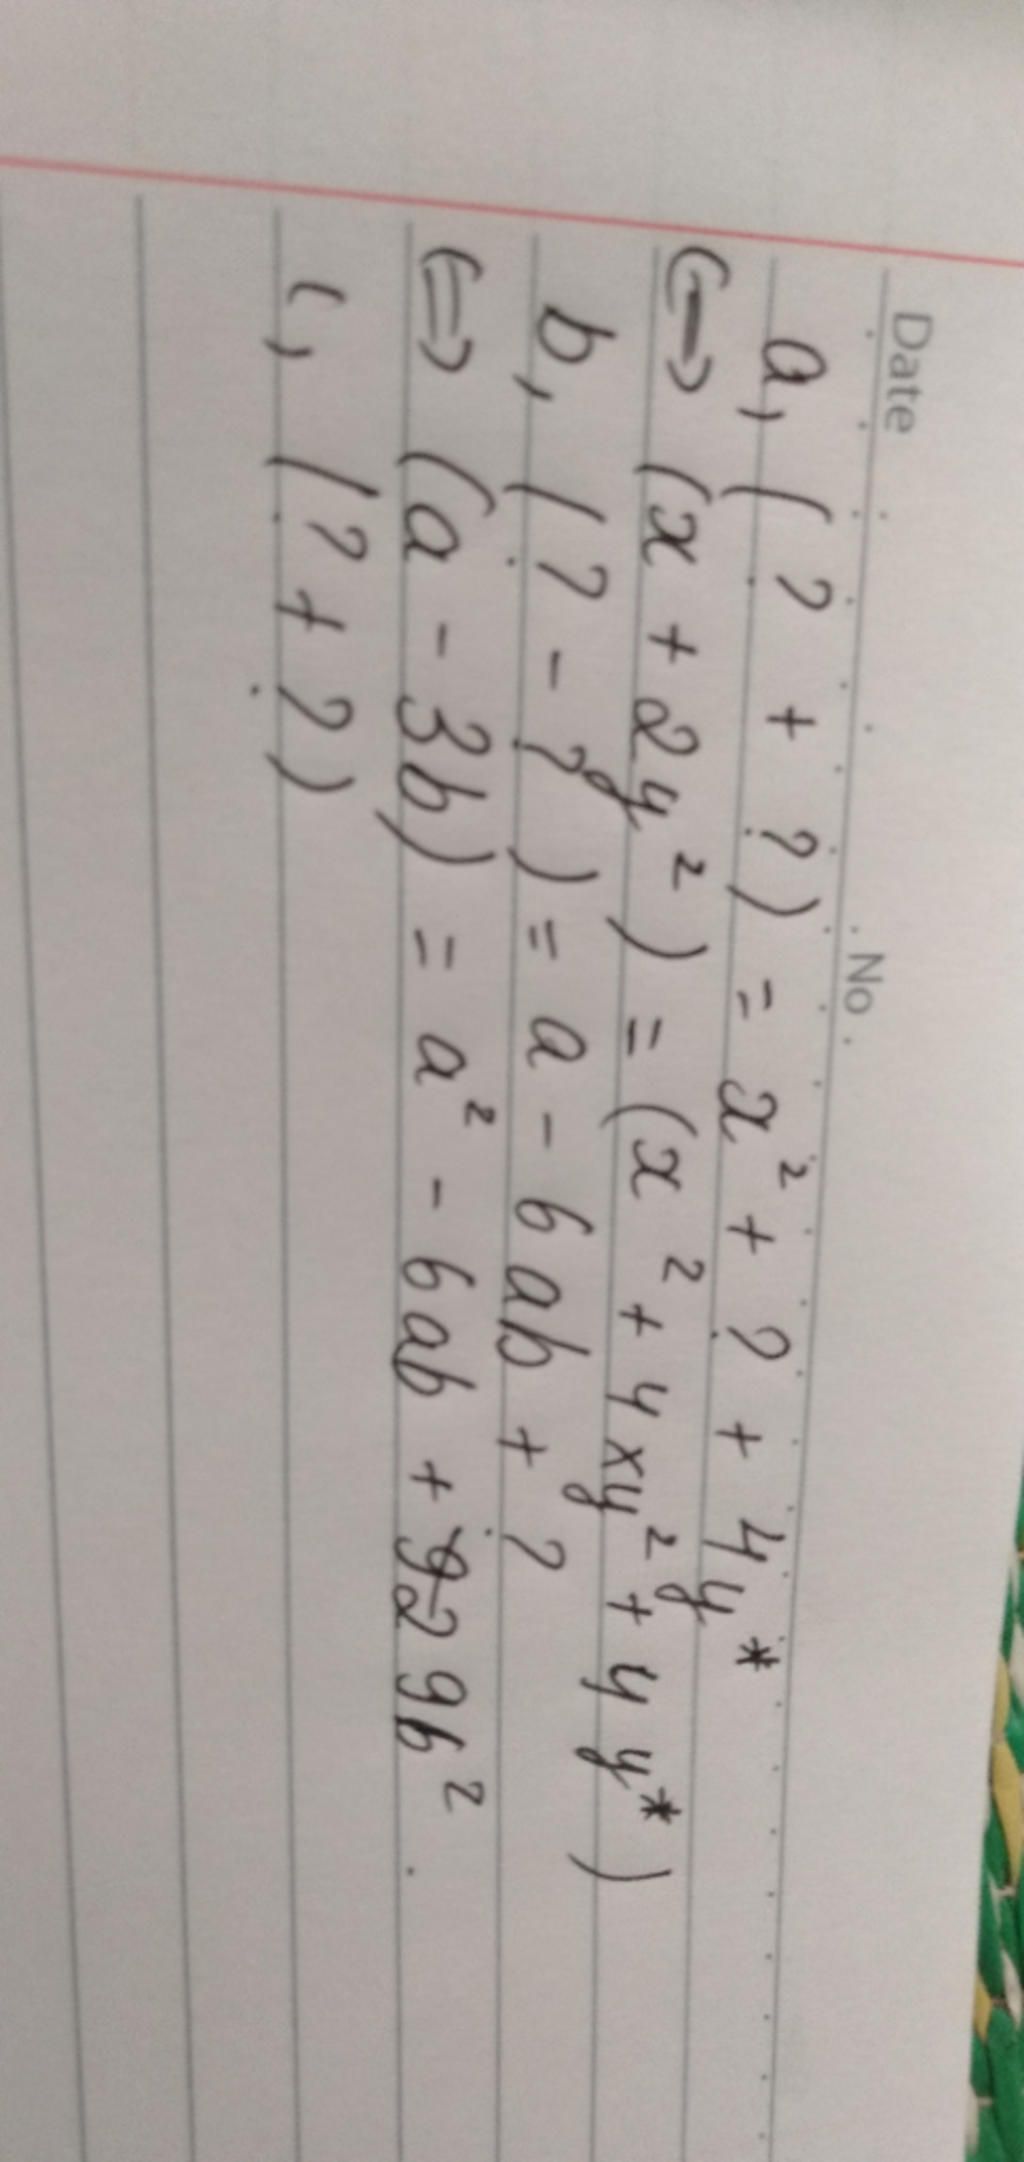 Date No.
a, (? + ?) = x² + ? + 4y*
<=> (x + 2y²) = (x² + 4xy² + 4y*)
b, (? - ?) = a - 6ab + ?
<=> (a - 3b) = a² - 6ab + 9b²
c, (? + ?)